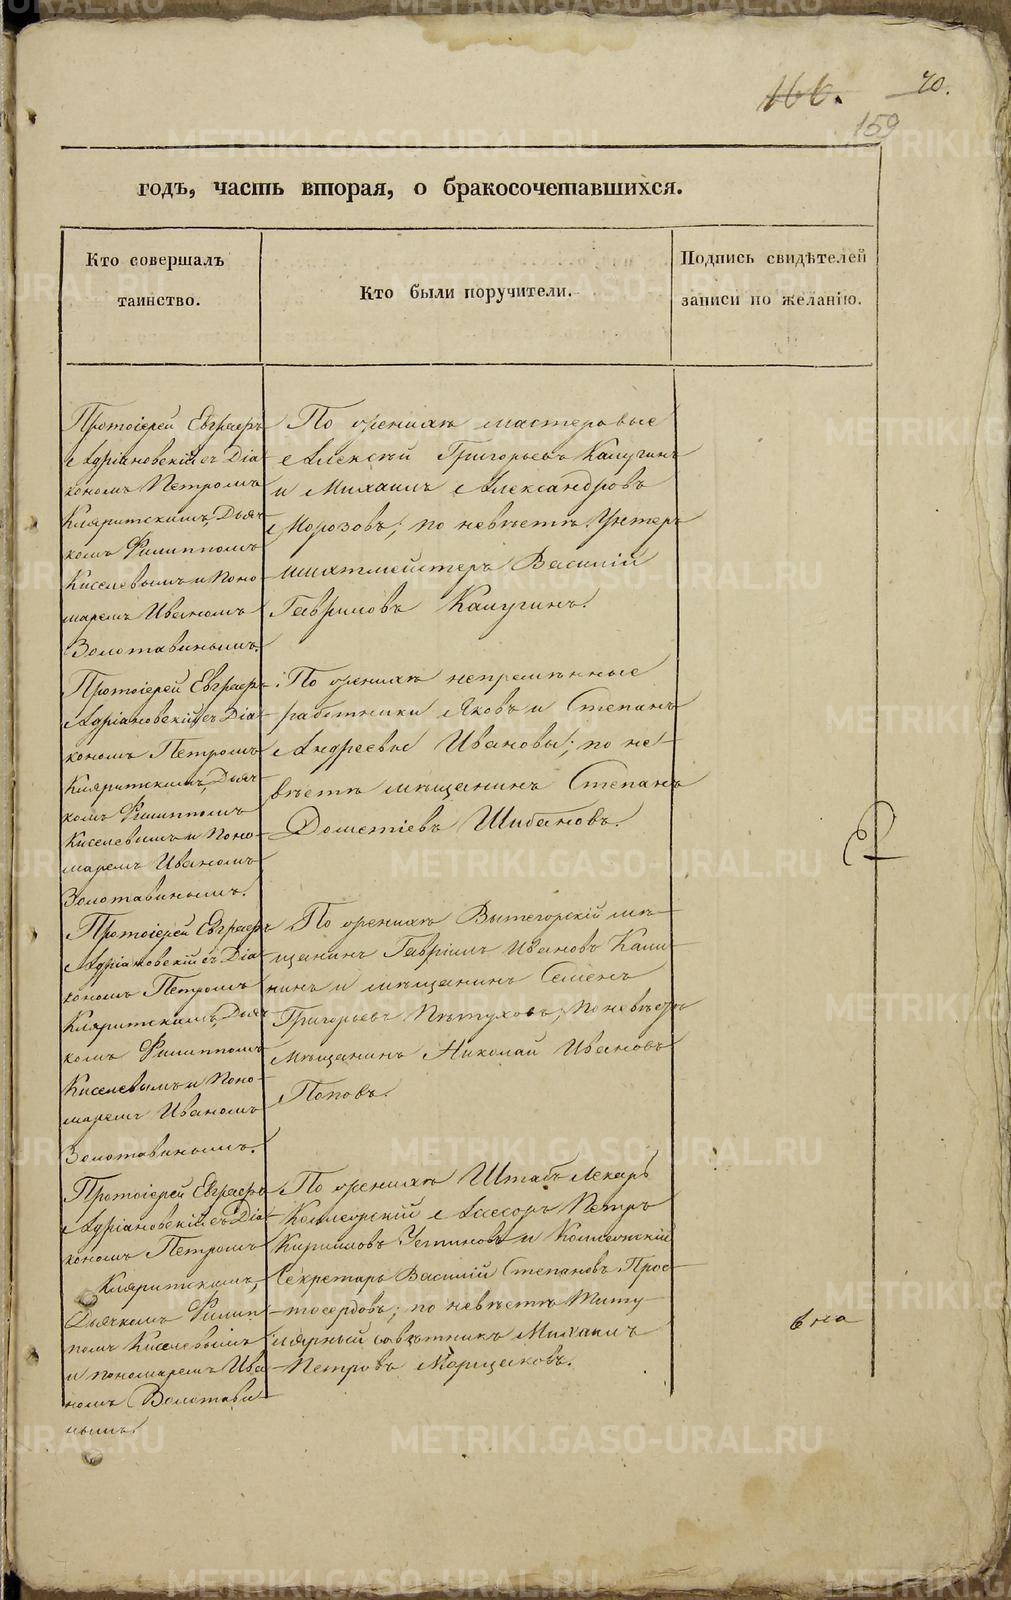 166.
70.
159
годъ, часть вторая, о бракосочетавшихся.
Кто совершалъ
таинство.
Кто были поручители.
Подпись свидѣтелей
записи по желанію.
Протоіерей Евграфъ
Адріановскій съ Діа-
кономъ Петромъ
Кляритскимъ, Дьяч-
комъ Филиппомъ
Киселевымъ и Поно-
маремъ Иваномъ
Золотавинымъ.
По женихѣ мастеровые
Алексѣй Григорьевъ Калугинъ
и Михаилъ Александровъ
Морозовъ; по невѣстѣ Унтеръ
шихтмейстеръ Василій
Гавриловъ Калугинъ.
Протоіерей Евграфъ
Адріановскій съ Діа-
кономъ Петромъ
Кляритскимъ, Дьяч-
комъ Филиппомъ
Киселевымъ и Поно-
маремъ Иваномъ
Золотавинымъ.
По женихѣ непремѣнные
работники Яковъ и Степанъ
Андреевы Ивановы; по не-
вѣстѣ мѣщанинъ Степанъ
Дометіевъ Шибановъ.
Протоіерей Евграфъ
Адріановскій съ Діа-
кономъ Петромъ
Кляритскимъ, Дьяч-
комъ Филиппомъ
Киселевымъ и Поно-
маремъ Иваномъ
Золотавинымъ.
По женихѣ Вытегорскій мѣ-
щанинъ Гавріилъ Ивановъ Кали-
нинъ и мѣщанинъ Семенъ
Григорьевъ Пѣтуховъ; по невѣстѣ
Мѣщанинъ Николай Ивановъ
Поповъ.
Протоіерей Евграфъ
Адріановскій съ Діа-
кономъ Петромъ
Кляритскимъ,
Дьячкомъ Филип-
помъ Киселевымъ
и пономаремъ Ива-
номъ Золотави-
нымъ.
По женихѣ Штабъ Лекарь
Коллежскій Ассесоръ Петръ
Кирилловъ Устиновъ и Коллежскій
Секретарь Василій Степановъ Прос-
тосердовъ; по невѣстѣ Титу-
лярный совѣтникъ Михаилъ
Петровъ
METRIKI.GASO-URAL.RU